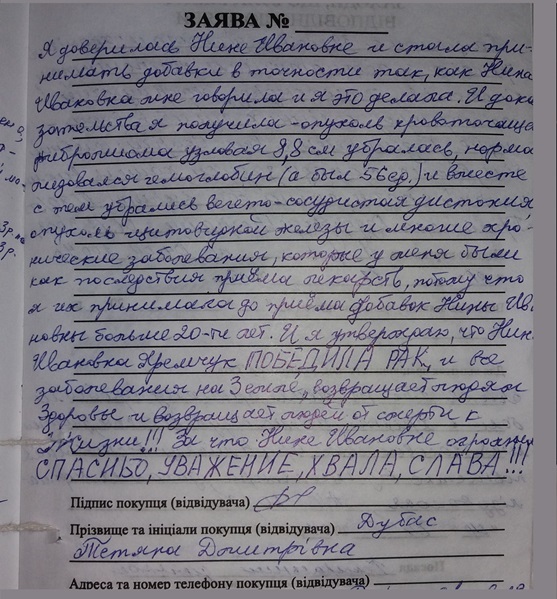 ЗАЯВА №
Я доверилась Нине Ивановне и стала при-
нимать добавки в точности так, как Нина
Ивановна мне говорила и я это делала. И дока
зательства я получила - опухоль кровоточаща
фибромиома узловая 8,8 см убралась, норма
лизовался гемоглобин (а был 56ед.) и вместе
с тем убрались вегето-сосудистая дистония
опухоль щитовидной железы и многие хро-
нические заболевания, которые у меня были
как последствия приёма лекарств, потому что
я их принимала до приёма добавок Нины Ив
новны больше 20-ти лет. И я утверждаю, что Нин
Ивановна Яремчук ПОБЕДИЛА РАК, и все
заболевания на Земле, возвращает людям
Здоровье и возвращает людей от смерти к
Жизни!!! За что Нине Ивановне огромн
СПАСИБО, УВАЖЕНИЕ, ХВАЛА, СЛАВА!!!
Підпис покупця (відвідувача)
Прізвище та ініціали покупця (відвідувача) Дубас
Тетяна Дмитрівна
Адреса та номер телефону покупця (відвідувача)